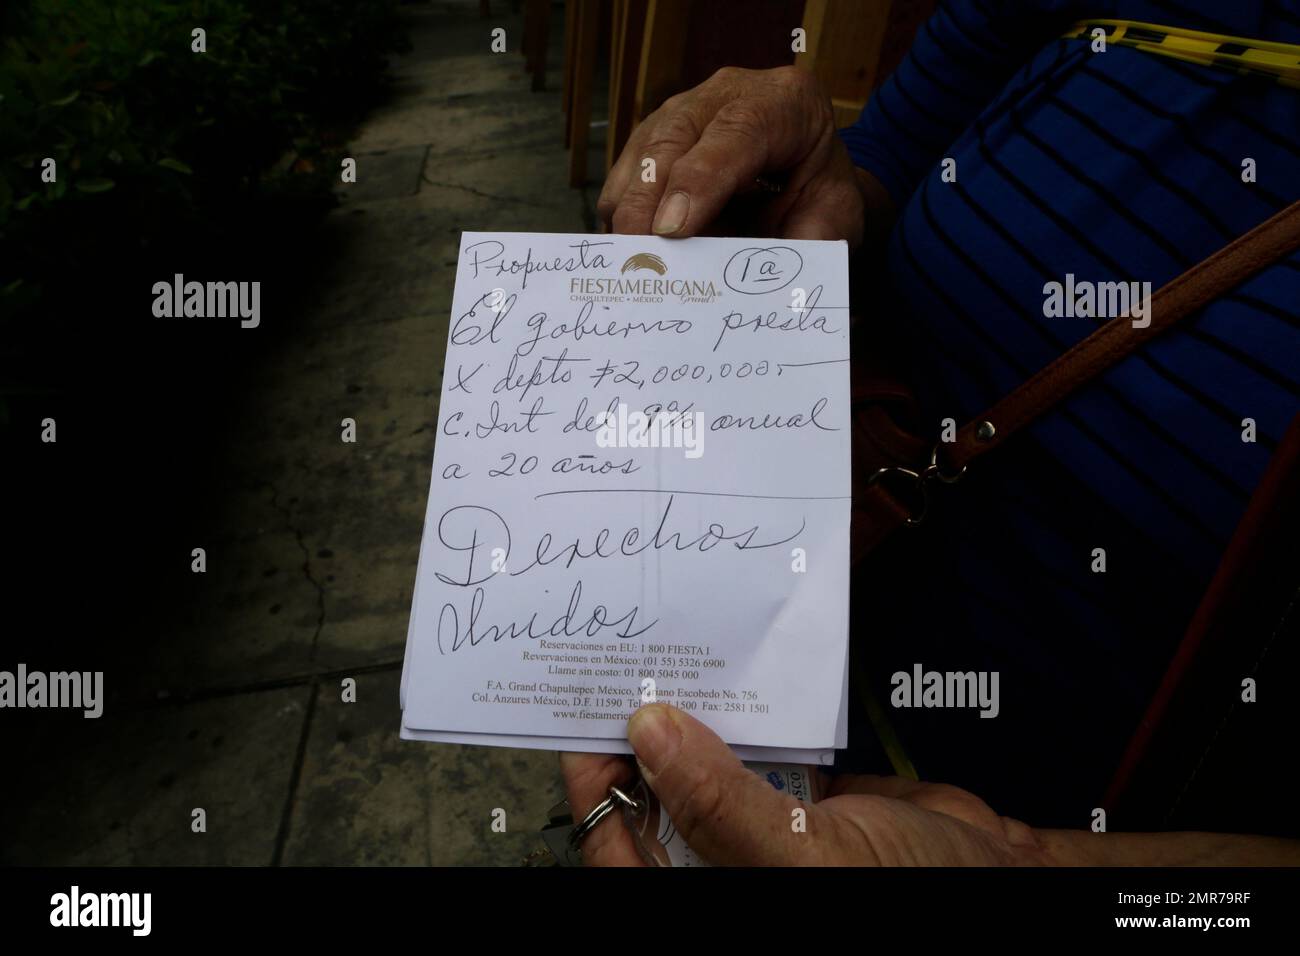 Propuesta
1a
FIESTAMERICANA®
Grand
CHAPULTEPEC • MÉXICO
El gobierno presta
X depto $2,000,000.-
c. Int del 9% anual
a 20 años
Derechos
Unidos
Reservaciones en EU: 1 800 FIESTA 1
Revervaciones en México: (01 55) 5326 6900
Llame sin costo: 01 800 5045 000
F.A. Grand Chapultepec México, Mariano Escobedo No. 756
Col. Anzures México, D.F. 11590 1500 Fax: 2581 1501
www.fiestameric
alamy
alamy
Image ID: 2MR79RF
www.alamy.com